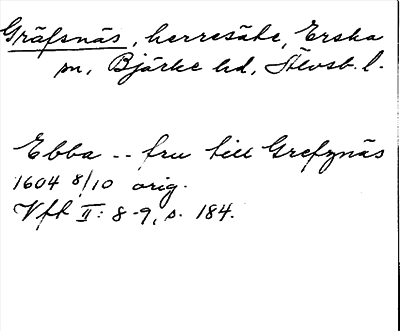 Gräfsnäs, herresäte, Erska
sn, Bjärke hd, Älvsb. l.
Ebba -- fru till Grefznäs
1604 8/10 orig.
Vft II: 8-9, s. 184.